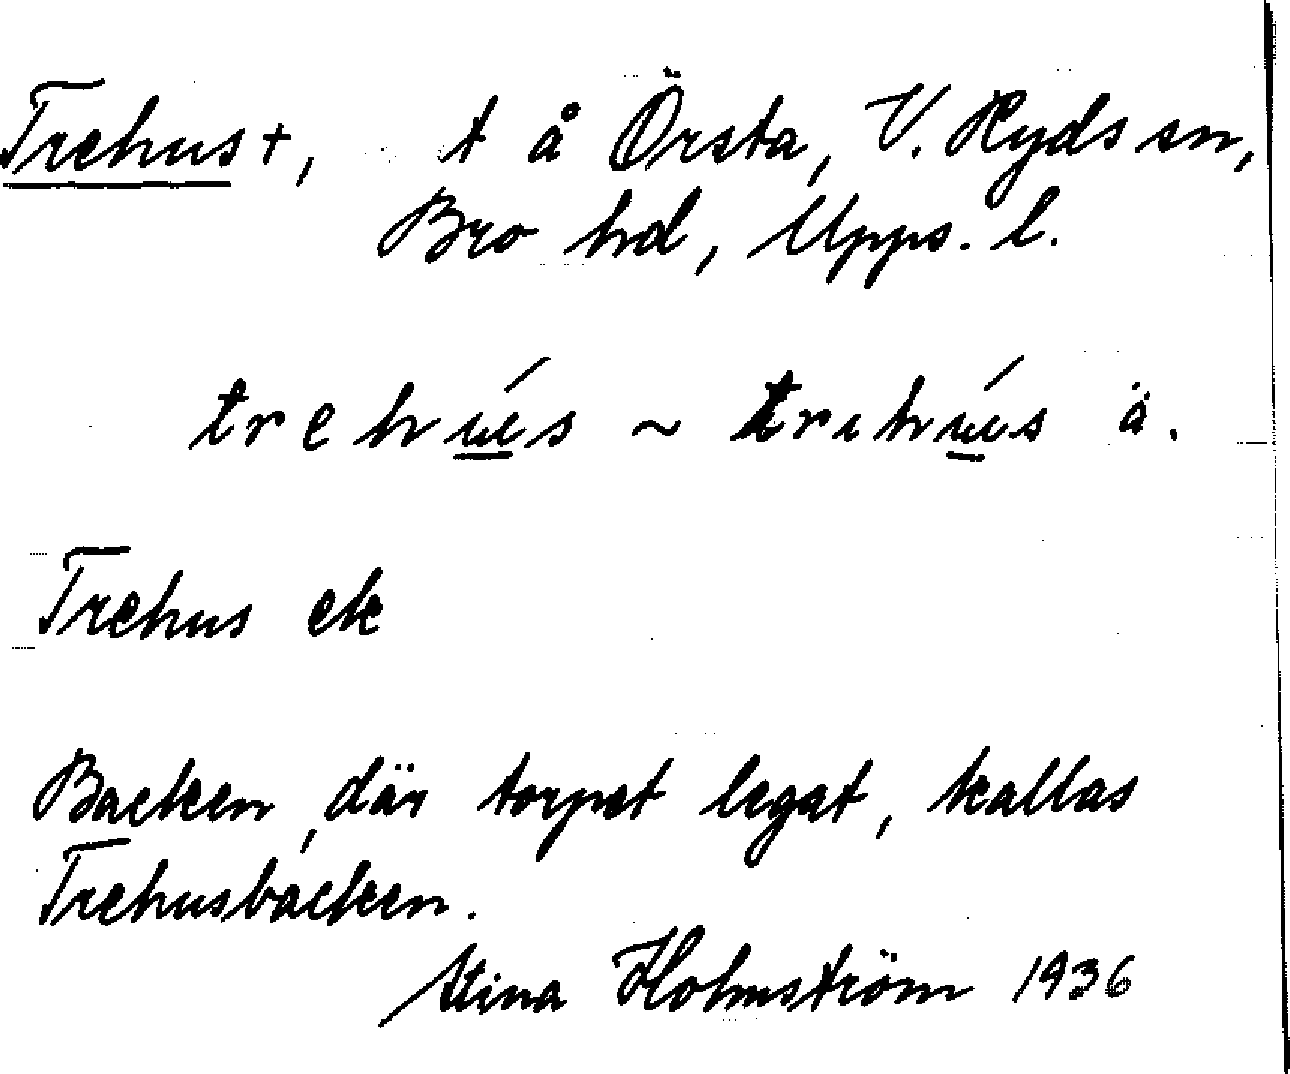 Trehus†, t å Örsta, V. Ryds sn,
Bro hd, Upps. l.
trehús ~ trıhús ä.
Trehus ek
Backen, där torpet legat, kallas
Trehusbacken.
Stina Holmström 1936